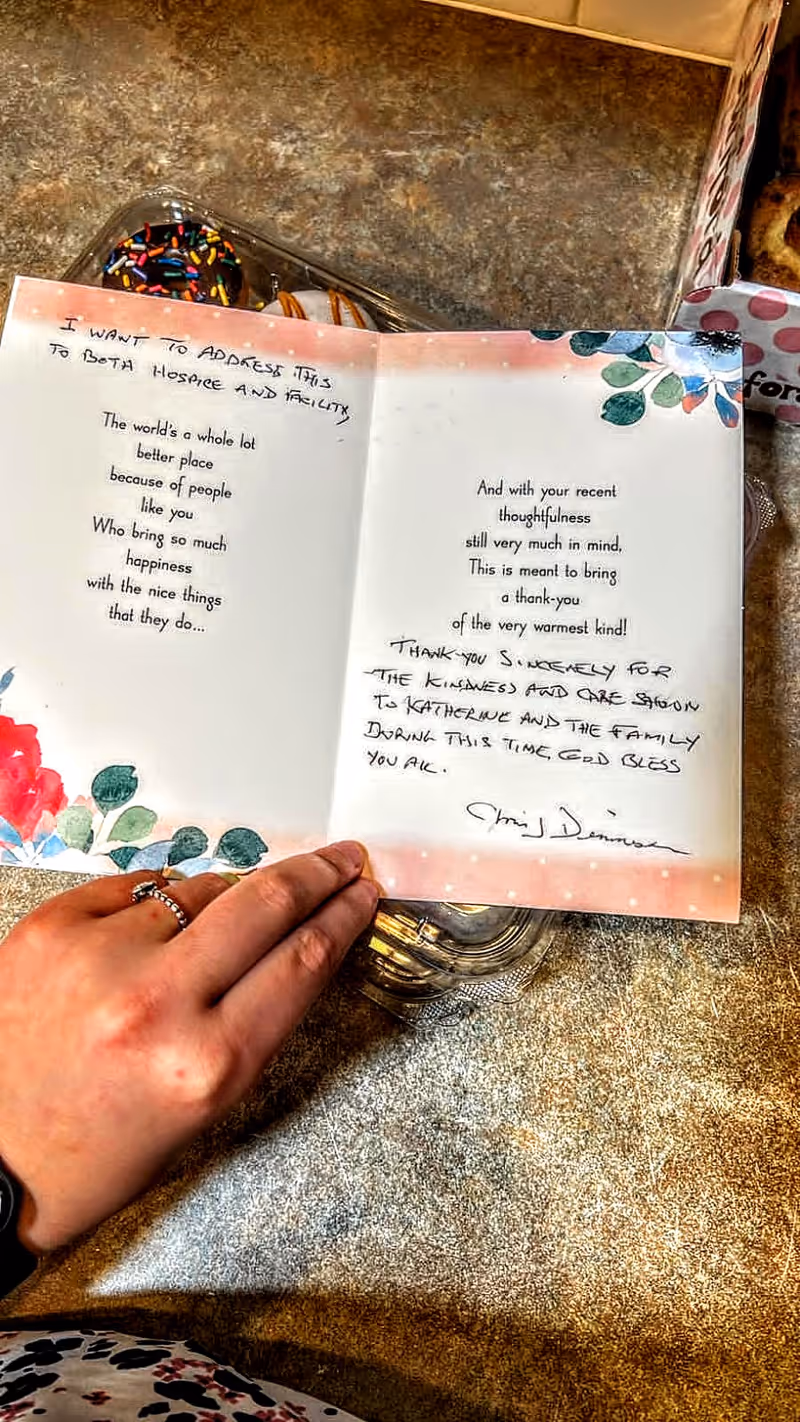 I WANT TO ADDRESS THIS
TO BOTH HOSPICE AND FACILITY,
The world's a whole lot
better place
because of people
like you
Who bring so much
happiness
with the nice things
that they do...
And with your recent
thoughtfulness
still very much in mind,
This is meant to bring
a thank-you
of the very warmest kind!
THANK-YOU SINCERELY FOR
THE KINDNESS AND CARE SHOWN
TO KATHERINE AND THE FAMILY
DURING THIS TIME, GOD BLESS
YOU ALL.
Chris J
for